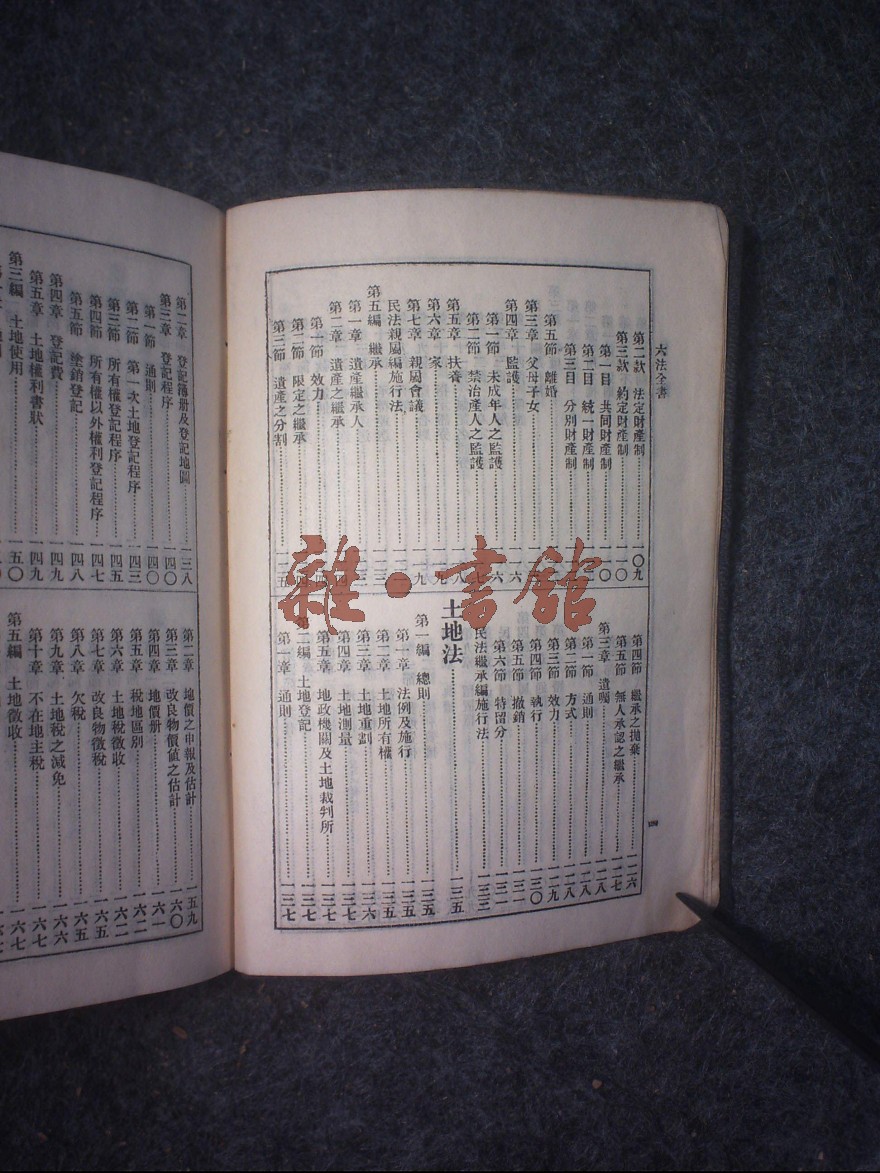 六法全書
第二款 法定財產制 一〇九
第三款 約定財產制 一一〇
第一目 共同財產制
第二目 統一財產制
第三目 分別財產制
第五節 離婚
第三章 父母子女
第四章 監護
第一節 未成年人之監護
第二節 禁治產人之監護
第五章 扶養
第六章 家
第七章 親屬會議
民法親屬編施行法
第五編 繼承
第一章 遺產繼承人
第二章 遺產之繼承
第一節 效力
第二節 限定之繼承
第三節 遺產之分割
第四節 繼承之拋棄 一二六
第五節 無人承認之繼承 一二七
第三章 遺囑 一二八
第一節 通則 一二八
第二節 方式 一二八
第三節 效力 一二九
第四節 執行 一三〇
第五節 撤銷 一三一
第六節 特留分
民法繼承編施行法 一三三
土地法 一三五
第一編 總則 一三五
第一章 法例及施行 一三五
第二章 土地所有權 一三五
第三章 土地重劃 一三六
第四章 土地測量 一三七
第五章 地政機關及土地裁判所 一三七
第二編 土地登記 一三七
第一章 通則 一三七
四
第二章 登記簿册及登記地圖 一三八
第三章 登記程序 一四〇
第一節 通則 一四〇
第二節 第一次土地登記程序 一四三
第三節 所有權登記程序 一四五
第四節 所有權以外權利登記程序 一四七
第五節 塗銷登記 一四八
第四章 登記費 一四九
第五章 土地權利書狀 一四九
第三編 土地使用 一五〇
第二章 地價之申報及估計 一五九
第三章 改良物價值之估計 一六〇
第四章 地價册 一六一
第五章 稅地區別 一六二
第六章 土地稅徵收 一六二
第七章 改良物徵稅 一六五
第八章 欠稅 一六五
第九章 土地稅之減免 一六六
第十章 不在地主稅 一六七
第五編 土地徵收 一六七
雜·書館